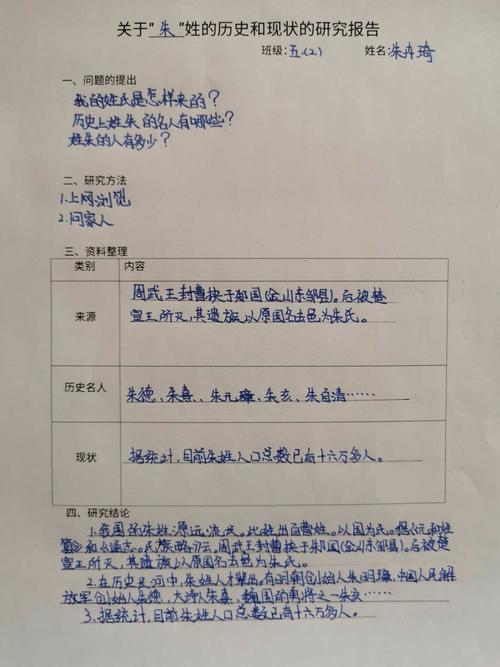 关于“朱”姓的历史和现状的研究报告
班级:五.(2) 姓名:朱卉琦
一、问题的提出
我的姓氏是怎样来的?
历史上姓朱的名人有哪些?
姓朱的人有多少?
二、研究方法
1.上网浏览
2.问家人
三、资料整理
类别 内容
来源
周武王封曹挟于邾国(今山东邹县)。后被楚
宣王所灭,其遗族以原国名去邑为朱氏。
历史名人 朱德、朱熹、朱元璋、朱亥、朱自清……
现状 据统计,目前朱姓人口总数已有十六万多人。
四、研究结论
1.我国的朱姓源远流长。此姓出自曹姓。以国为氏。据《元和姓
纂》和《通志。氏族略》云,周武王封曹挟于邾国(今山东邹县)后被楚
宣王所灭,其遗族以原国名去邑为朱氏。
2.在历史长河中,朱姓人才辈出。有明朝创始人朱明璋,中国人民解
放军创始人朱德,大诗人朱熹,魏国的勇将之一朱亥……
3.据统计,目前朱姓人口总数已有十六万多人。